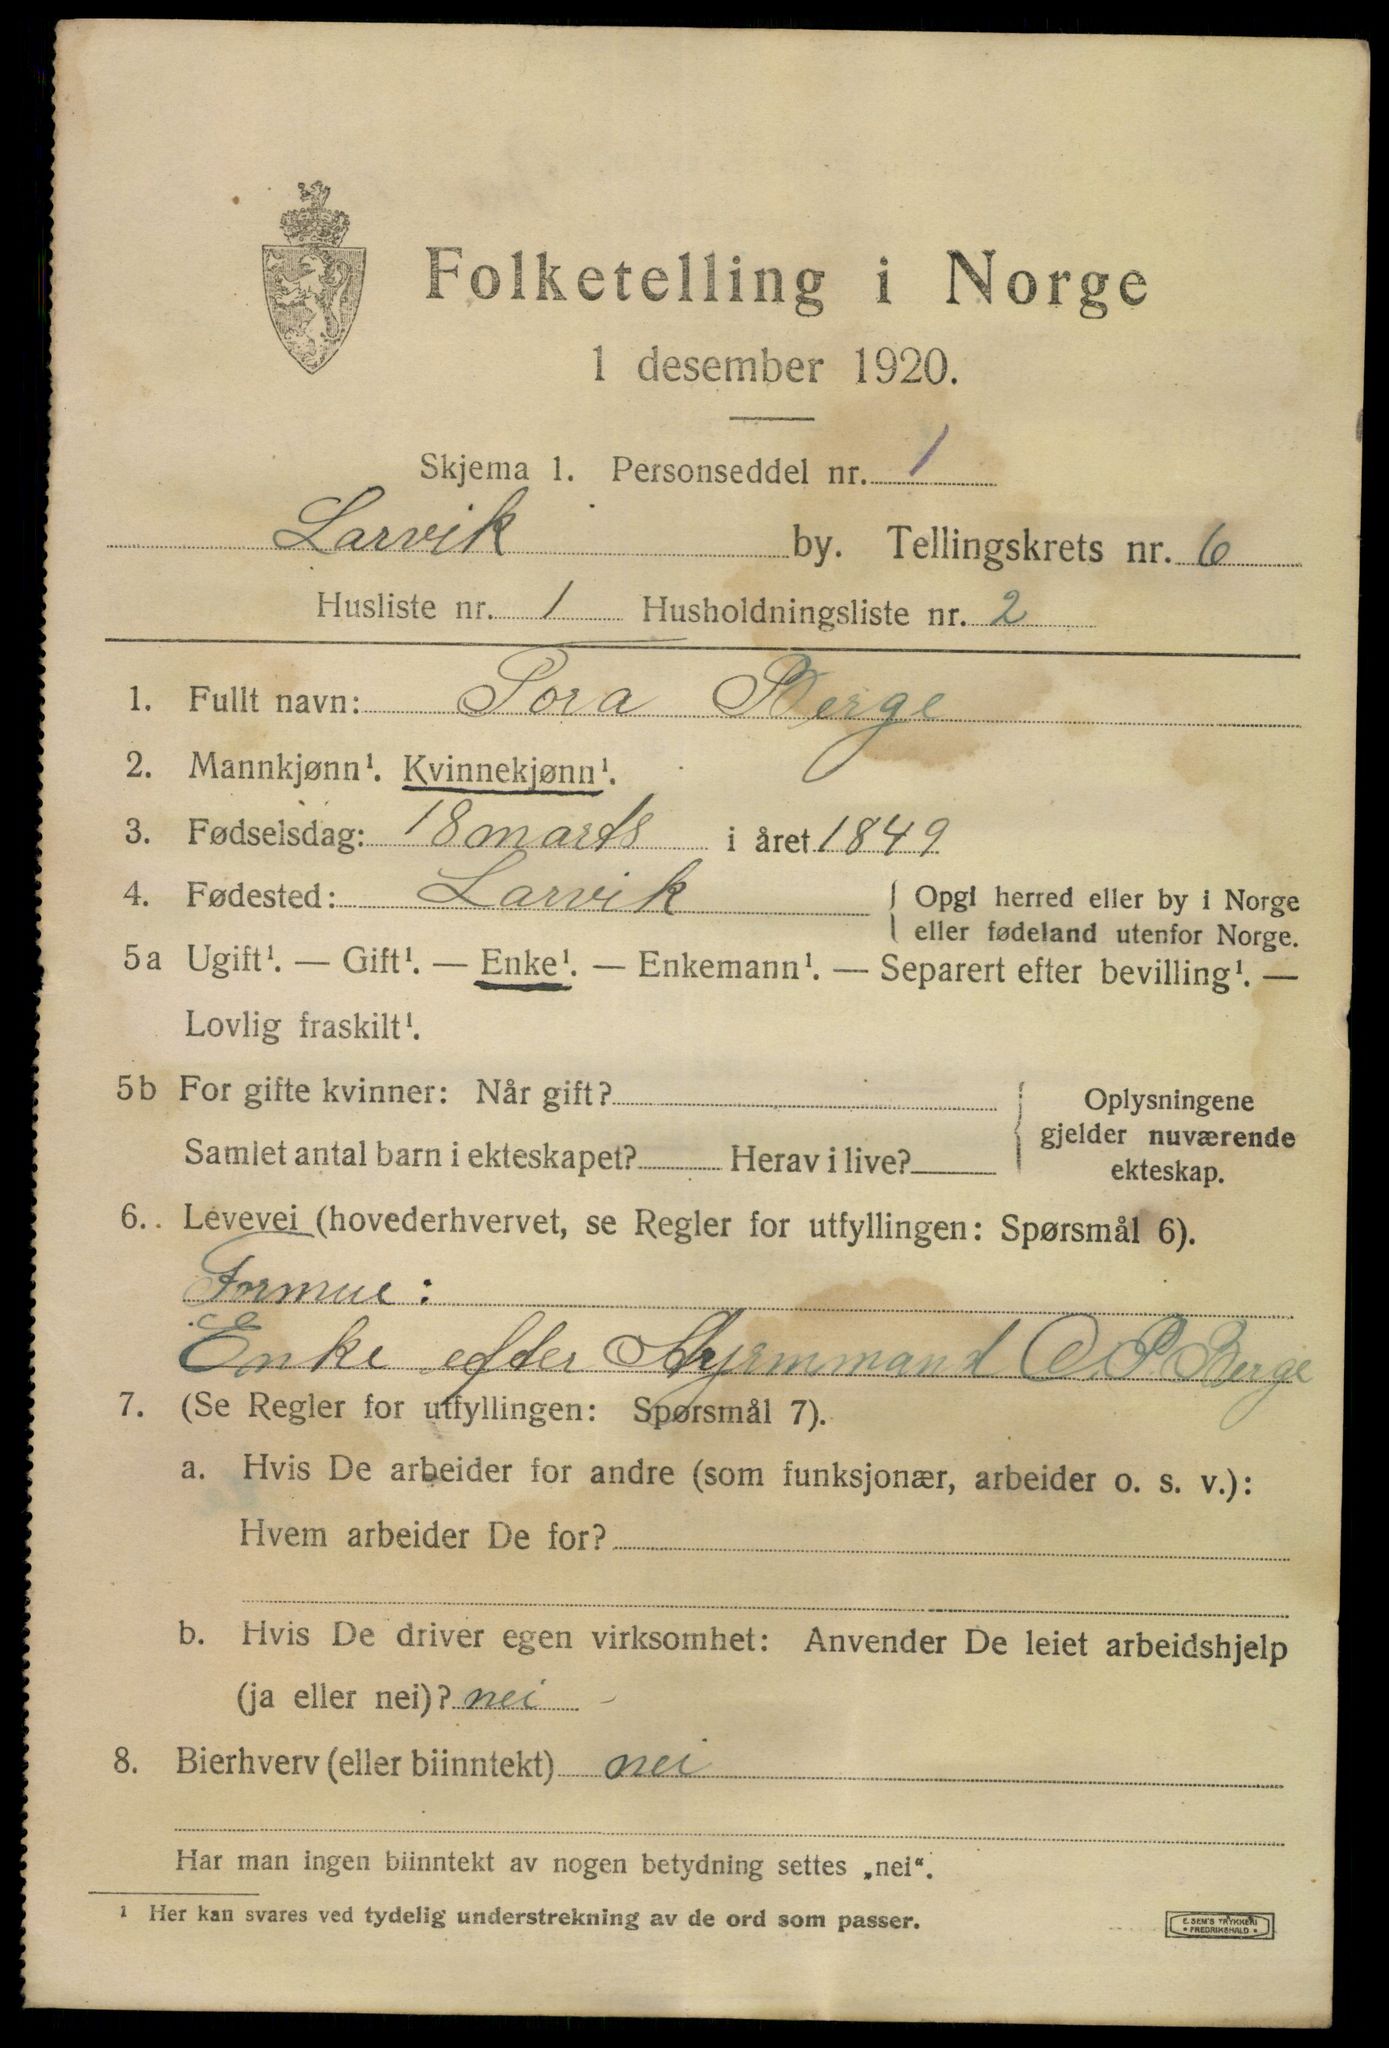 Folketelling i Norge
1 desember 1920.
Skjema 1. Personseddel nr. 1
Larvik by. Tellingskrets nr. 6
Husliste nr. 1 Husholdningsliste nr. 2
1. Fullt navn: Tora Berge
2. Mannkjønn¹. Kvinnekjønn¹.
3. Fødselsdag: 18 marts i året 1849
4. Fødested: Larvik { Opgi herred eller by i Norge
eller fødeland utenfor Norge.
5a Ugift¹. — Gift¹. — Enke¹. — Enkemann¹. — Separert efter bevilling¹. —
Lovlig fraskilt¹.
5b For gifte kvinner: Når gift? { Oplysningene
gjelder nuværende
Samlet antal barn i ekteskapet? Herav i live?
ekteskap.
6. Levevei (hovederhvervet, se Regler for utfyllingen: Spørsmål 6).
Formue:
Enke efter Styrmmand O. P. Berge
7. (Se Regler for utfyllingen: Spørsmål 7).
a. Hvis De arbeider for andre (som funksjonær, arbeider o. s. v.):
Hvem arbeider De for?
b. Hvis De driver egen virksomhet: Anvender De leiet arbeidshjelp
(ja eller nei)? nei
8. Bierhverv (eller biinntekt) nei
Har man ingen biinntekt av nogen betydning settes „nei“.
¹ Her kan svares ved tydelig understrekning av de ord som passer.
E. SEM'S TRYKKERI
• FREDRIKSHALD •